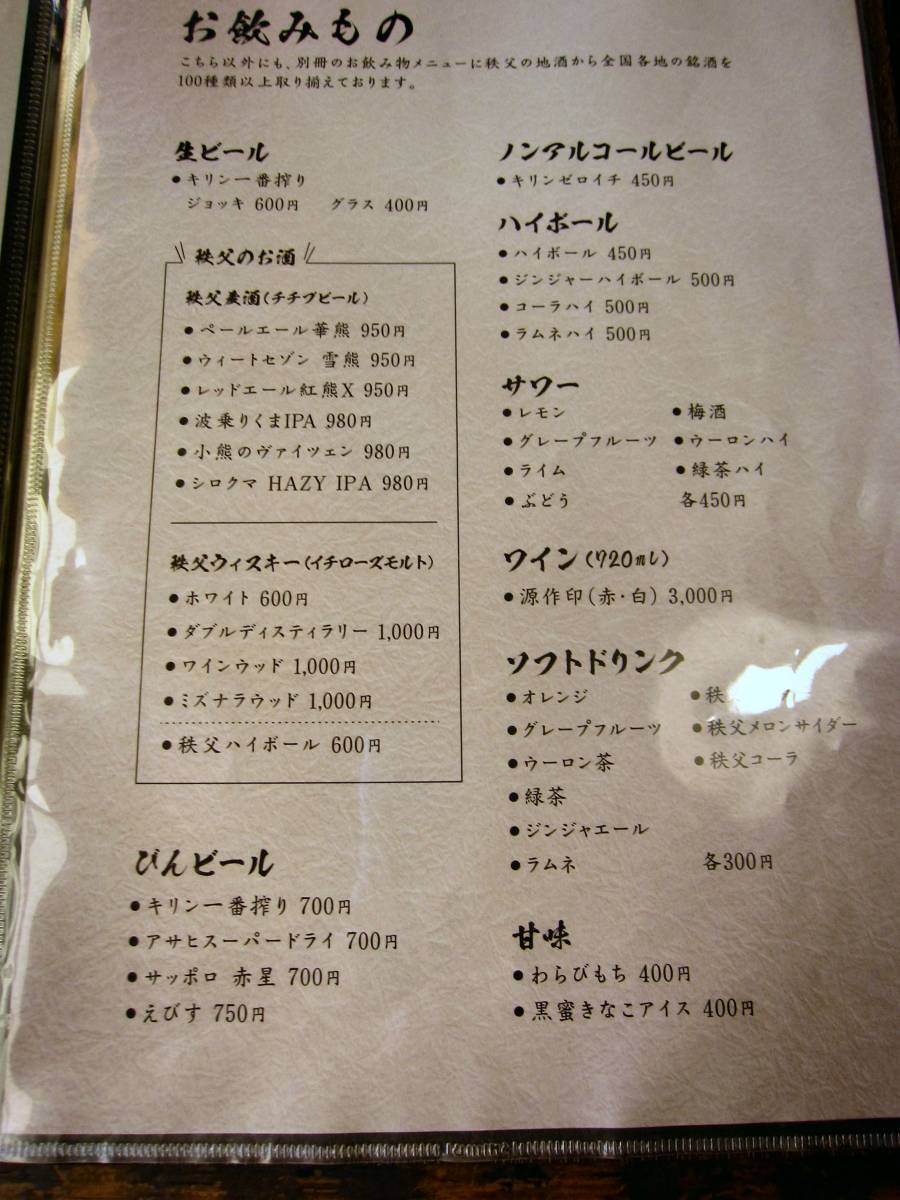 お飲みもの
こちら以外にも、別冊のお飲み物メニューに秩父の地酒から全国各地の銘酒を
100種類以上取り揃えております。
生ビール
●キリン一番搾り
ジョッキ 600円 グラス 400円
秩父のお酒
秩父麦酒(チチブビール)
●ペールエール華熊 950円
●ウィートセゾン 雪熊 950円
●レッドエール紅熊X 950円
●波乗りくまIPA 980円
●小熊のヴァイツェン 980円
●シロクマ HAZY IPA 980円
秩父ウィスキー(イチローズモルト)
●ホワイト 600円
●ダブルディスティラリー 1,000円
●ワインウッド 1,000円
●ミズナラウッド 1,000円
●秩父ハイボール 600円
びんビール
●キリン一番搾り 700円
●アサヒスーパードライ 700円
●サッポロ 赤星 700円
●えびす 750円
ノンアルコールビール
●キリンゼロイチ 450円
ハイボール
●ハイボール 450円
●ジンジャーハイボール 500円
●コーラハイ 500円
●ラムネハイ 500円
サワー
●レモン ●梅酒
●グレープフルーツ ●ウーロンハイ
●ライム ●緑茶ハイ
●ぶどう 各450円
ワイン(720ml)
●源作印(赤・白) 3,000円
ソフトドリンク
●オレンジ ●秩
●グレープフルーツ ●秩父メロンサイダー
●ウーロン茶 ●秩父コーラ
●緑茶
●ジンジャエール
●ラムネ 各300円
甘味
●わらびもち 400円
●黒蜜きなこアイス 400円